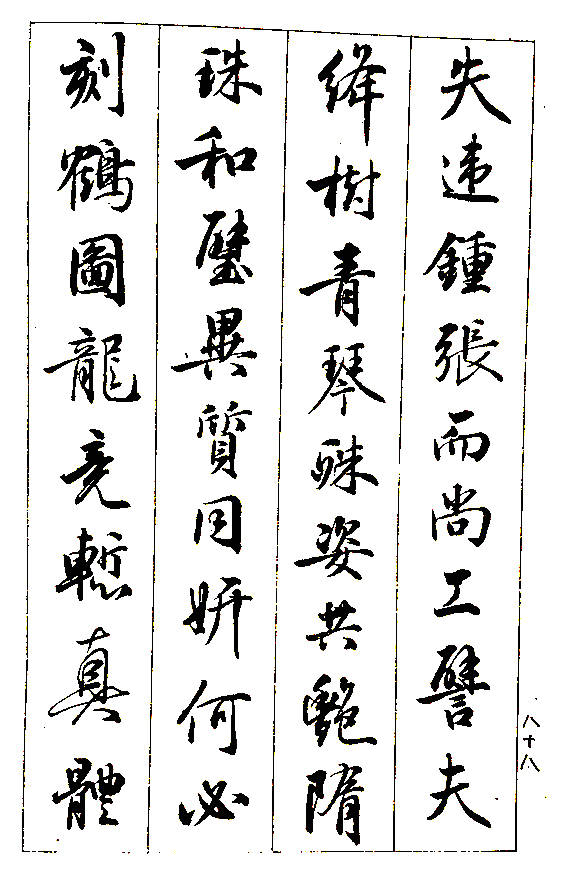 失違鍾張而尚工譬夫
絳樹青琴殊姿共艷隋
珠和璧異質同妍何必
刻鶴圖龍竟慙真體
八十八